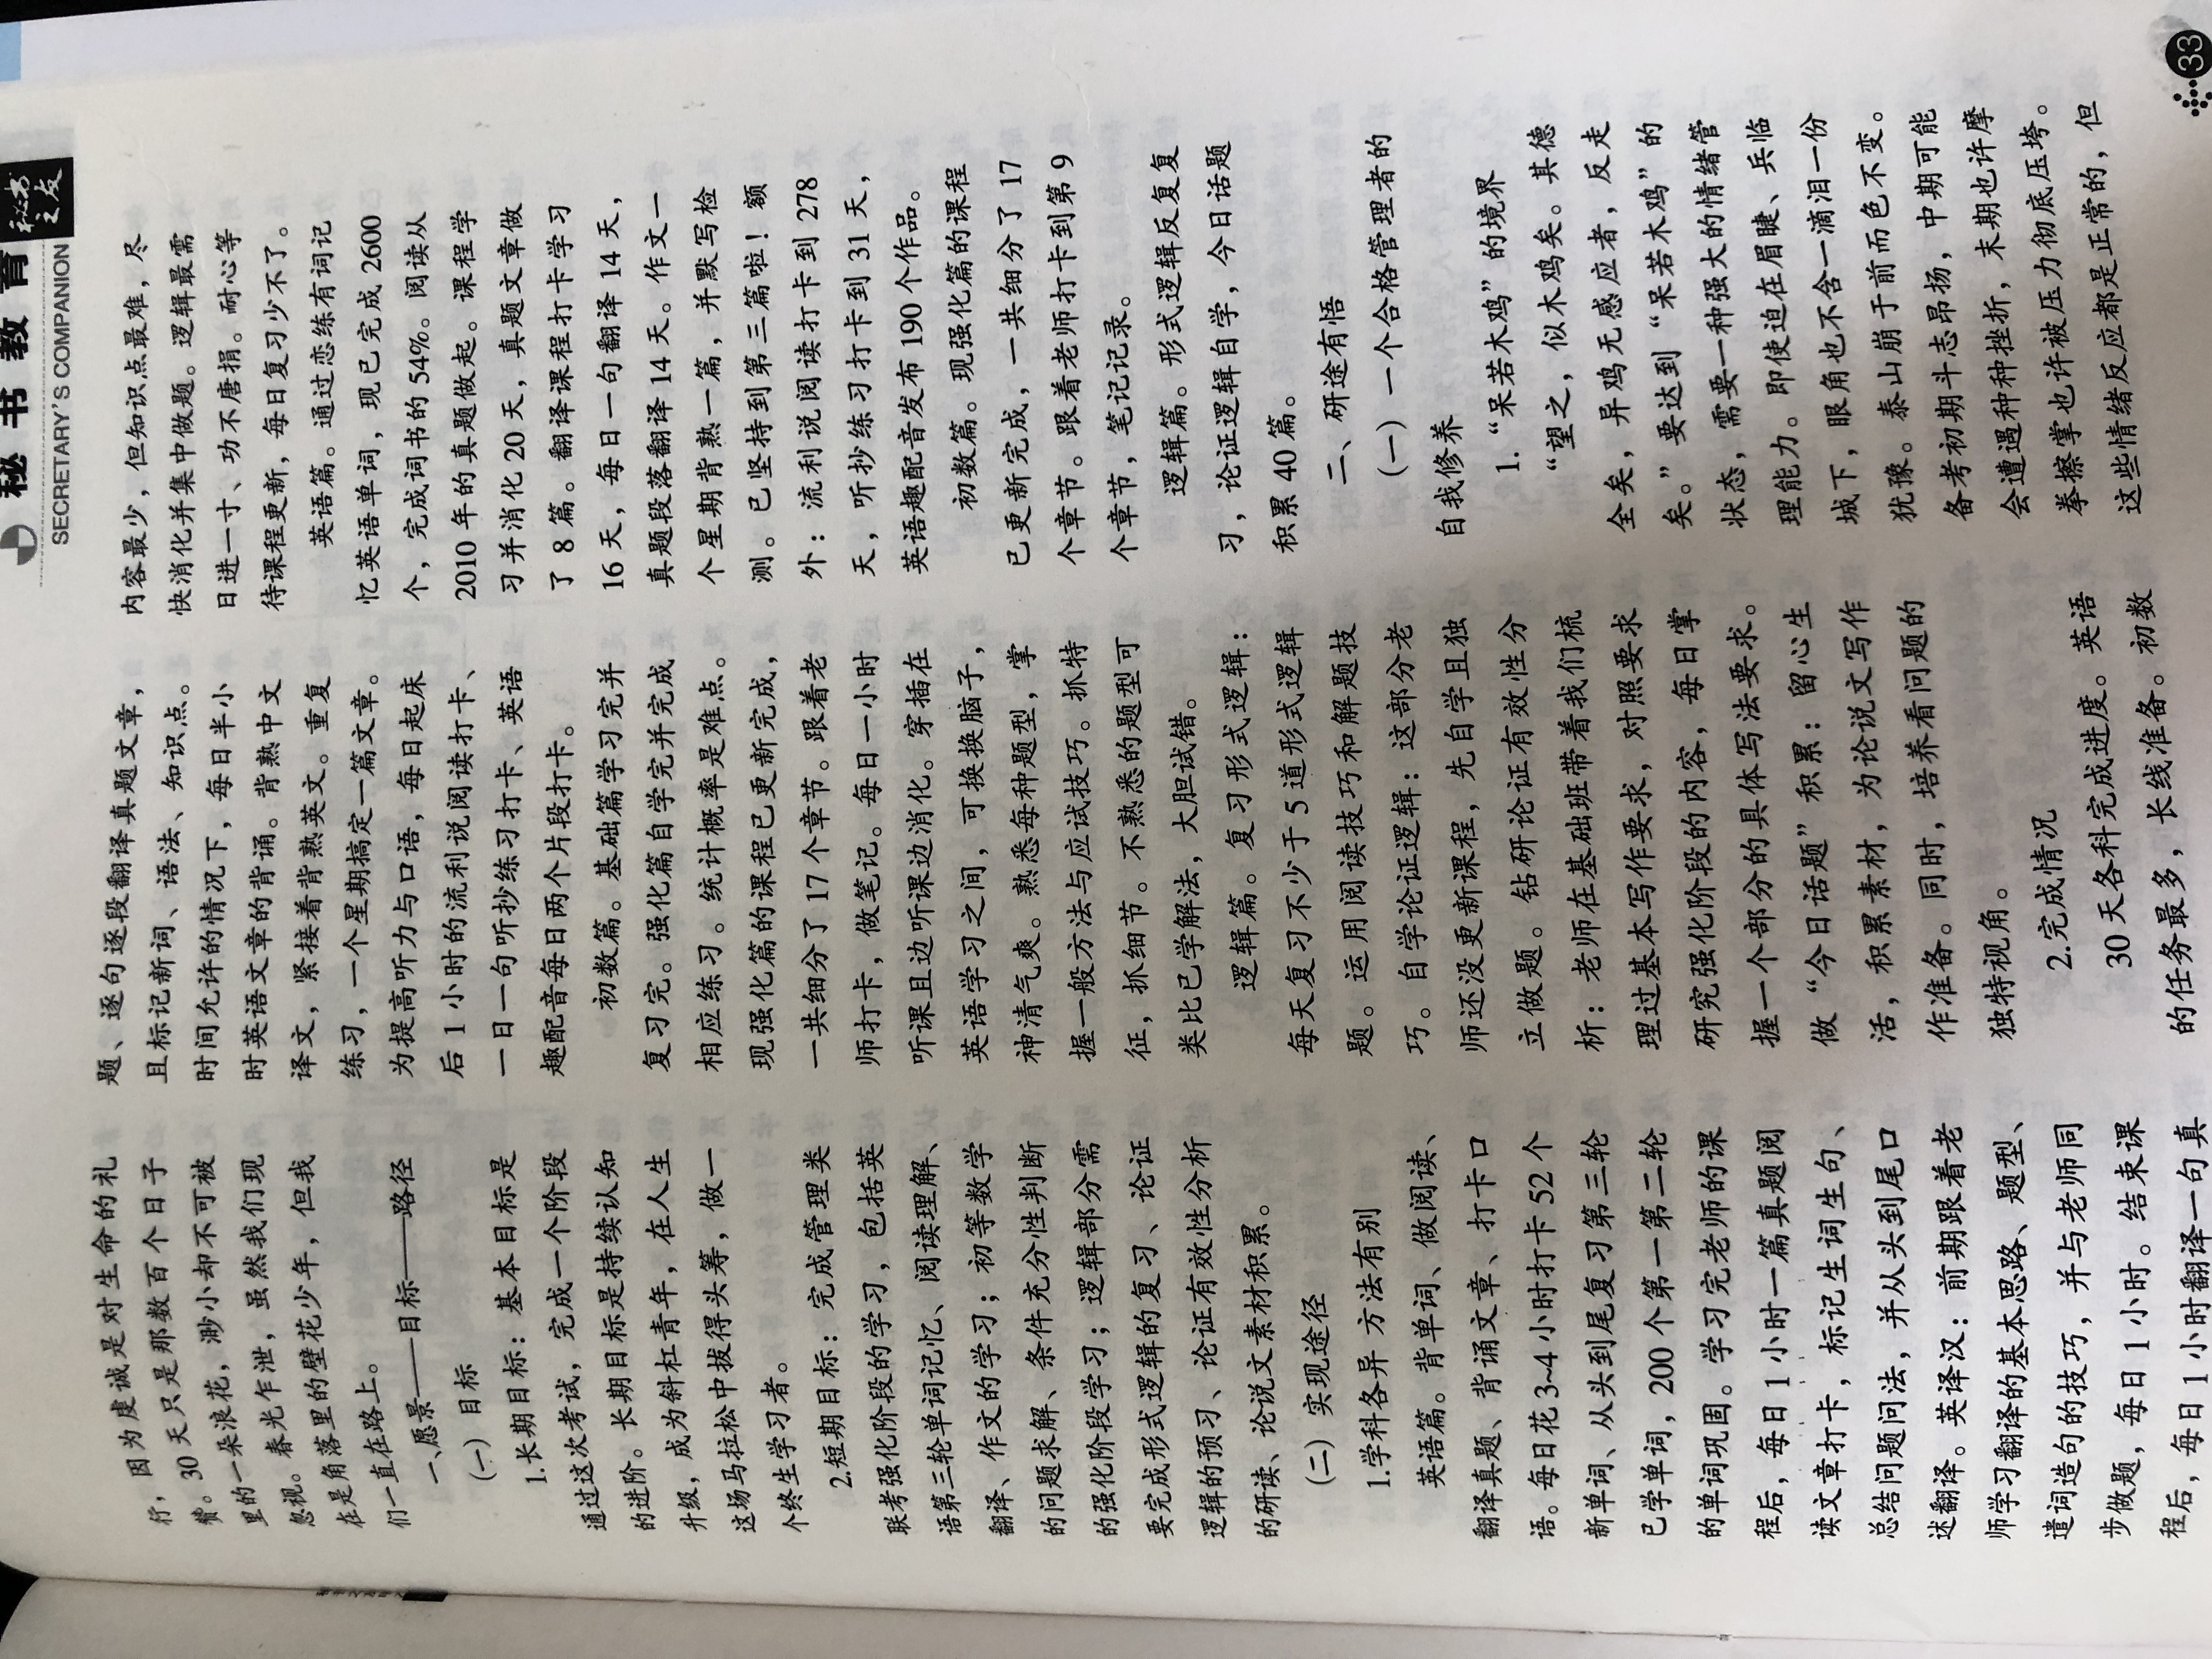 秘书教育
秘书之友
SECRETARY'S COMPANION
行，因为虔诚是对生命的礼
赞。30 天只是那数百个日子
里的一朵浪花，渺小却不可被
忽视。春光乍泄，虽然我们现
在是角落里的壁花少年，但我
们一直在路上。
一、愿景——目标——路径
（一）目标
1.长期目标：基本目标是
通过这次考试，完成一个阶段
的进阶。长期目标是持续认知
升级，成为斜杠青年，在人生
这场马拉松中拔得头筹，做一
个终生学习者。
2.短期目标：完成管理类
联考强化阶段的学习，包括英
语第三轮单词记忆、阅读理解、
翻译、作文的学习；初等数学
的问题求解、条件充分性判断
的强化阶段学习；逻辑部分需
要完成形式逻辑的复习、论证
逻辑的预习、论证有效性分析
的研读、论说文素材积累。
（二）实现途径
1.学科各异 方法有别
英语篇。背单词、做阅读、
翻译真题、背诵文章、打卡口
语。每日花 3~4 小时打卡 52 个
新单词、从头到尾复习第三轮
已学单词，200 个第一第二轮
的单词巩固。学习完老师的课
程后，每日 1 小时一篇真题阅
读文章打卡，标记生词生句、
总结问题问法，并从头到尾口
述翻译。英译汉：前期跟着老
师学习翻译的基本思路、题型、
遣词造句的技巧，并与老师同
步做题，每日 1 小时。结束课
程后，每日 1 小时翻译一句真
题、逐句逐段翻译真题文章，
且标记新词、语法、知识点。
时间允许的情况下，每日半小
时英语文章的背诵。背熟中文
译文，紧接着背熟英文。重复
练习，一个星期搞定一篇文章。
为提高听力与口语，每日起床
后 1 小时的流利说阅读打卡、
一日一句听抄练习打卡、英语
趣配音每日两个片段打卡。
初数篇。基础篇学习完并
复习完。强化篇自学完并完成
相应练习。统计概率是难点。
现强化篇的课程已更新完成，
一共细分了 17 个章节。跟着老
师打卡，做笔记。每日一小时
听课且边听课边消化。穿插在
英语学习之间，可换换脑子，
神清气爽。熟悉每种题型，掌
握一般方法与应试技巧。抓特
征，抓细节。不熟悉的题型可
类比已学解法，大胆试错。
逻辑篇。复习形式逻辑：
每天复习不少于 5 道形式逻辑
题。运用阅读技巧和解题技
巧。自学论证逻辑：这部分老
师还没更新课程，先自学且独
立做题。钻研论证有效性分
析：老师在基础班带着我们梳
理过基本写作要求，对照要求
研究强化阶段的内容，每日掌
握一个部分的具体写法要求。
做“今日话题”积累：留心生
活，积累素材，为论说文写作
作准备。同时，培养看问题的
独特视角。
2.完成情况
30 天各科完成进度。英语
的任务最多，长线准备。初数
内容最少，但知识点最难，尽
快消化并集中做题。逻辑最需
日进一寸、功不唐捐。耐心等
待课程更新，每日复习少不了。
英语篇。通过恋练有词记
忆英语单词，现已完成 2600
个，完成词书的 54%。阅读从
2010 年的真题做起。课程学
习并消化 20 天，真题文章做
了 8 篇。翻译课程打卡学习
16 天，每日一句翻译 14 天，
真题段落翻译 14 天。作文一
个星期背熟一篇，并默写检
测。已坚持到第三篇啦！额
外：流利说阅读打卡到 278
天，听抄练习打卡到 31 天，
英语趣配音发布 190 个作品。
初数篇。现强化篇的课程
已更新完成，一共细分了 17
个章节。跟着老师打卡到第 9
个章节，笔记记录。
逻辑篇。形式逻辑反复复
习，论证逻辑自学，今日话题
积累 40 篇。
二、研途有悟
（一）一个合格管理者的
自我修养
1.“呆若木鸡”的境界
“望之，似木鸡矣。其德
全矣，异鸡无感应者，反走
矣。”要达到“呆若木鸡”的
状态，需要一种强大的情绪管
理能力。即使迫在眉睫、兵临
城下，眼角也不含一滴泪一份
犹豫。泰山崩于前而色不变。
备考初期斗志昂扬，中期可能
会遭遇种种挫折，末期也许摩
拳擦掌也许被压力彻底压垮。
这些情绪反应都是正常的，但
33